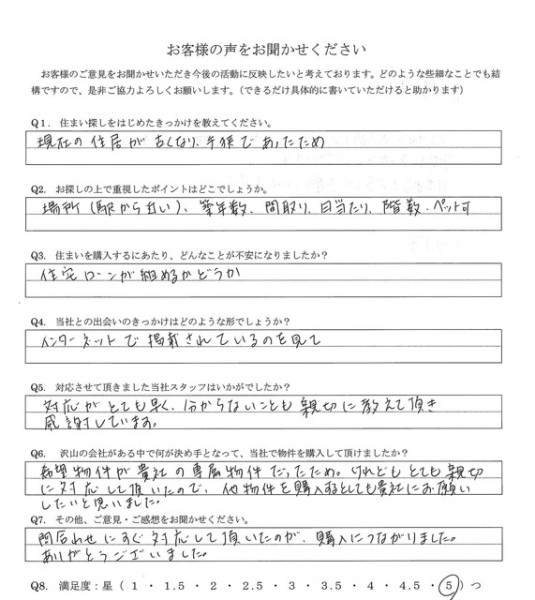 お客様の声をお聞かせください
お客様のご意見をお聞かせいただき今後の活動に反映したいと考えております。どのような些細なことでも結
構ですので、是非ご協力よろしくお願いします。（できるだけ具体的に書いていただけると助かります）
Q1. 住まい探しをはじめたきっかけを教えてください。
現在の住居が古くなり、手狭であったため
Q2. お探しの上で重視したポイントはどこでしょうか。
場所（駅から近い）、築年数、間取り、日当たり、階数、ペット可
Q3. 住まいを購入するにあたり、どんなことが不安になりましたか？
住宅ローンが組めるかどうか
Q4. 当社との出会いのきっかけはどのような形でしょうか？
インターネットで掲載されているのを見て
Q5. 対応させて頂きました当社スタッフはいかがでしたか？
対応がとても早く、分からないことも親切に教えて頂き
感謝しています。
Q6. 沢山の会社がある中で何が決め手となって、当社で物件を購入して頂けましたか？
希望物件が貴社の専属物件だったため。けれどもとても親切
に対応して頂いたので、他物件を購入するとしても貴社にお願い
したいと思いました。
Q7. その他、ご意見・ご感想をお聞かせください。
問合わせにすぐ対応して頂いたのが、購入につながりました。
ありがとうございました。
Q8. 満足度：星（ 1 ・ 1.5 ・ 2 ・ 2.5 ・ 3 ・ 3.5 ・ 4 ・ 4.5 ・ 5 ）つ